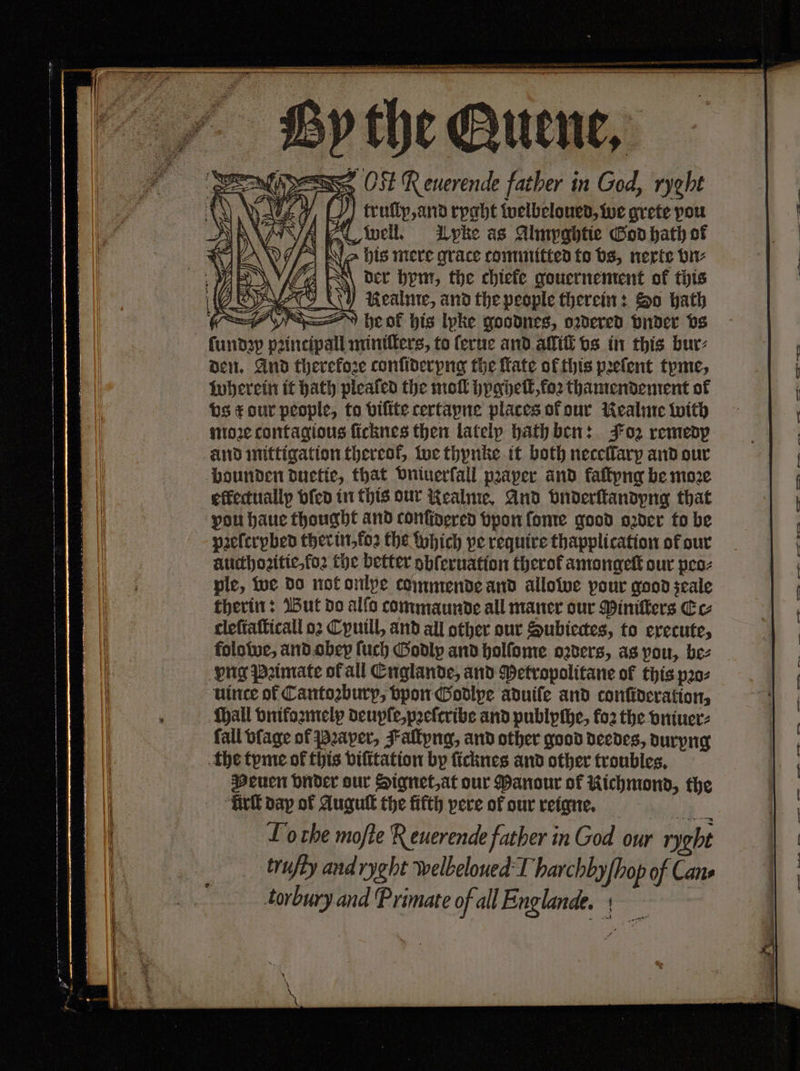 By the Quene,
MOSt Reuerende father in God, ryght
truſty, and ryght welbeloued, we grete you
well. Lyke as Almyghtie God hath of
his mere grace committed to vs, nexte vn-
der hym, the chiefe gouernement of this
Realme, and the people therein: So hath
he of his lyke goodnes, ordered vnder vs
ſundry principall miniſters, to ſerue and aſſiſt vs in this bur-
den. And therefore conſideryng the ſtate of this preſent tyme,
wherein it hath pleaſed the moſt hygheſt, for thamendement of
vs & our people, to viſite certayne places of our Realme with
more contagious ſicknes then lately hath ben: For remedy
and mittigation thereof, we thynke it both neceſſary and our
bounden duetie, that vniuerſall prayer and faſtyng be more
effectually vſed in this our Realme. And vnderſtandyng that
you haue thought and conſidered vpon ſome good order to be
preſcrybed therin, for the which ye require thapplication of our
aucthoritie, for the better obſeruation therof amongeſt our peo-
ple, we do not onlye commende and allowe your good zeale
therin: But do alſo commaunde all maner our Miniſters Ec-
cleſiaſticall or Cyuill, and all other our Subiectes, to execute,
folowe, and obey ſuch Godly and holſome orders, as you, be-
yng Primate of all Englande, and Metropolitane of this pro-
uince of Cantorbury, vpon Godlye aduiſe and conſideration,
ſhall vniformely deuyſe, preſcribe and publyſhe, for the vniuer-
ſall vſage of Prayer, Faſtyng, and other good deedes, duryng
the tyme of this viſitation by ſicknes and other troubles.
Yeuen vnder our Signet, at our Manour of Richmond, the
firſt day of Auguſt the fifth yere of our reigne.
To the moſte Reuerende father in God our ryght
truſty and ryght welbeloued Tharchbyſhop of Can-
torbury and Primate of all Englande.